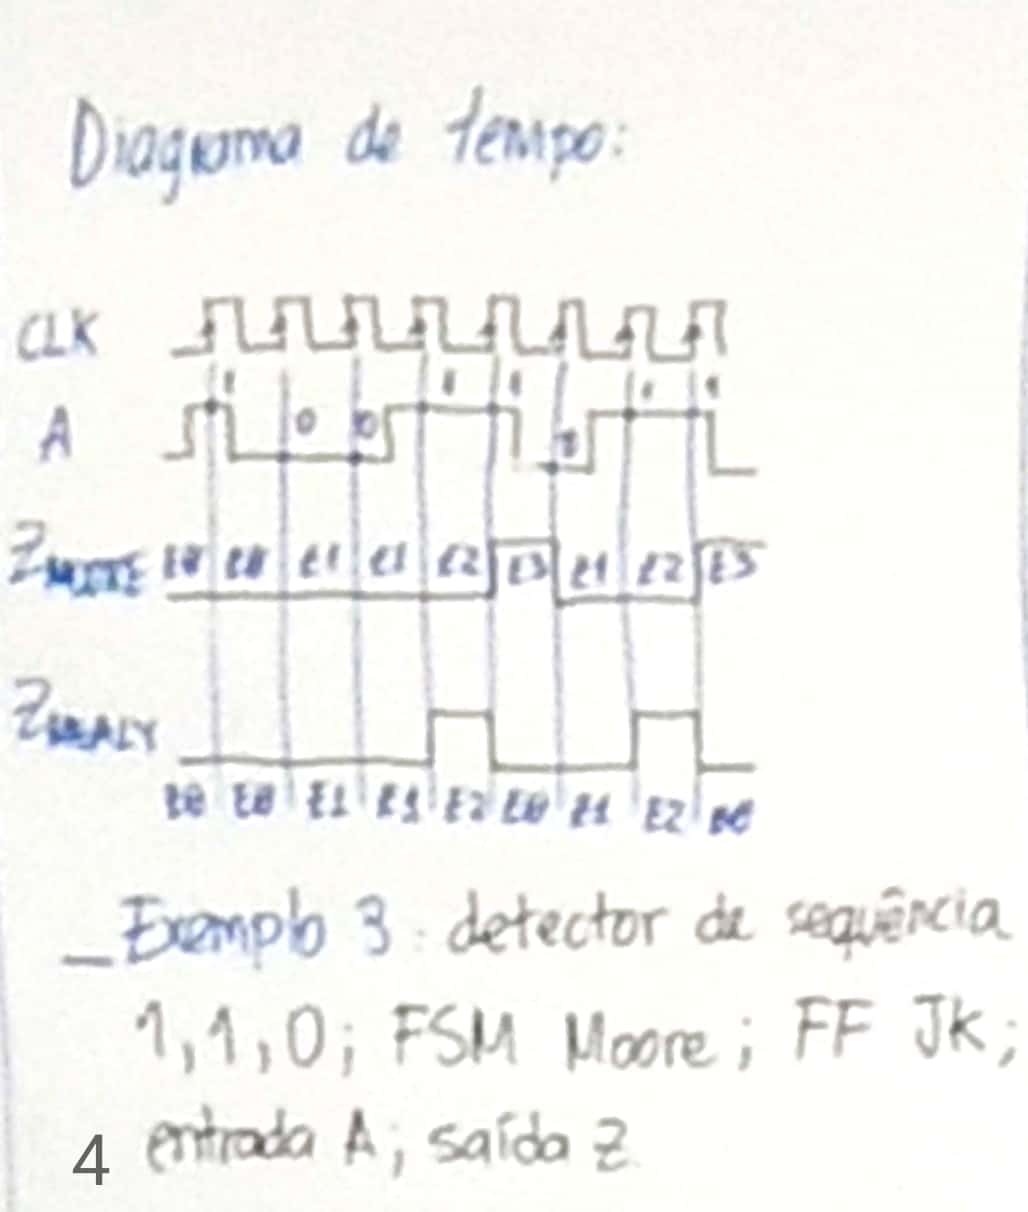 Diagrama de tempo:
CLK
1 1 1 1 1
A 0 0 0
ZMOORE E0 E0 E1 E1 E2 E3 E1 E2 E3
ZMEALY
E0 E0 E1 E1 E2 E0 E1 E2 E0
Exemplo 3: detector de sequência
1,1,0; FSM Moore; FF JK;
4 entrada A; saída Z